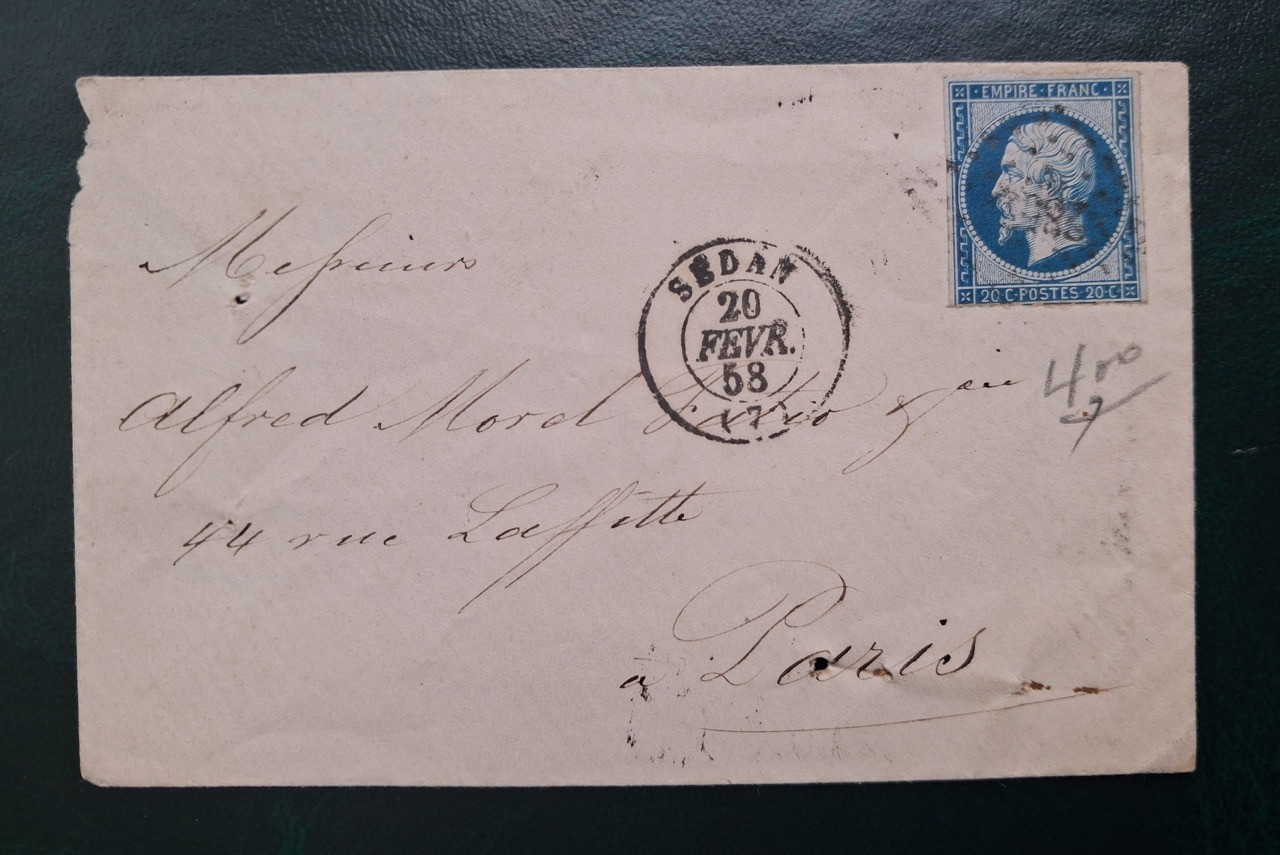 EMPIRE·FRANC·
20·C·POSTES·20·C·
SEDAN
20
FEVR.
58
(7)
Messieurs
Alfred Morel Fatio & Cie
44 rue Laffitte
à Paris